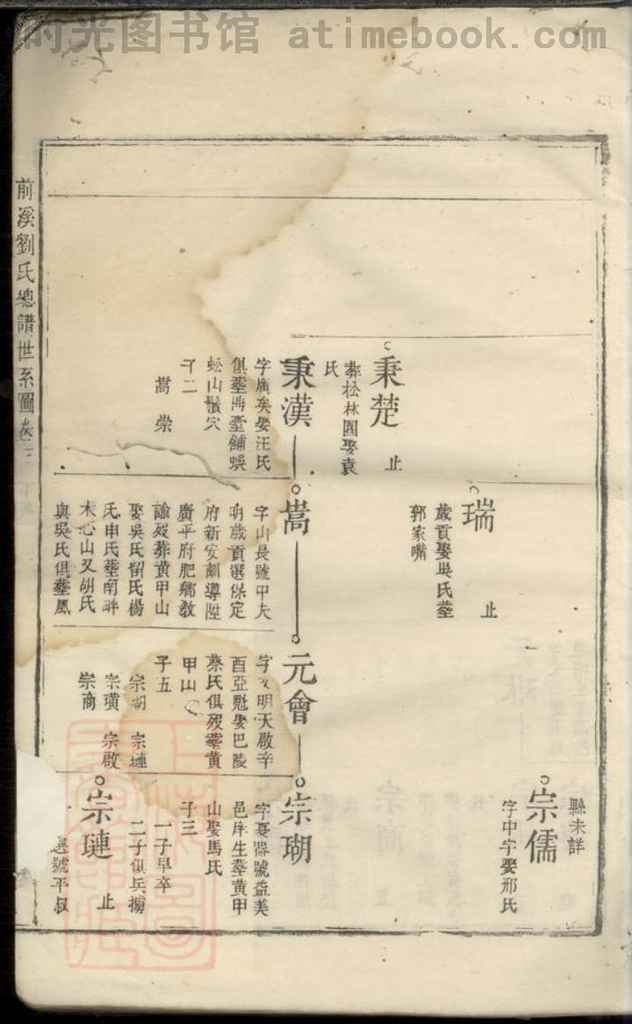 时光图书馆 atimebook.com
縣未詳
宗儒
字中字娶邢氏
瑞
止
歲貢娶吳氏塟
郭家嘴
秉楚
止
葬松林園娶袁
氏
秉漢
字廣矣娶汪氏
俱塟馮臺鋪蜈
蚣山鬚穴
子二
嵩 崇
嵩
字山長號中夫
明歲貢選保定
府新安訓導陞
廣平府肥鄉教
諭歿葬黃甲山
娶吳氏留氏楊
氏申氏塟南畔
木心山又胡氏
與吳氏俱塟鳳
元會
明天啟辛
酉亞魁娶巴陵
蔡氏俱歿塟黃
甲山
子五
宗瑚 宗璉
宗璜 宗啟
宗商
宗瑚
字夏器號益美
邑庠生塟黃甲
山娶馬氏
子三
一子早卒
二子俱兵擄
宗璉
止
號平叔
前溪劉氏總譜世系圖